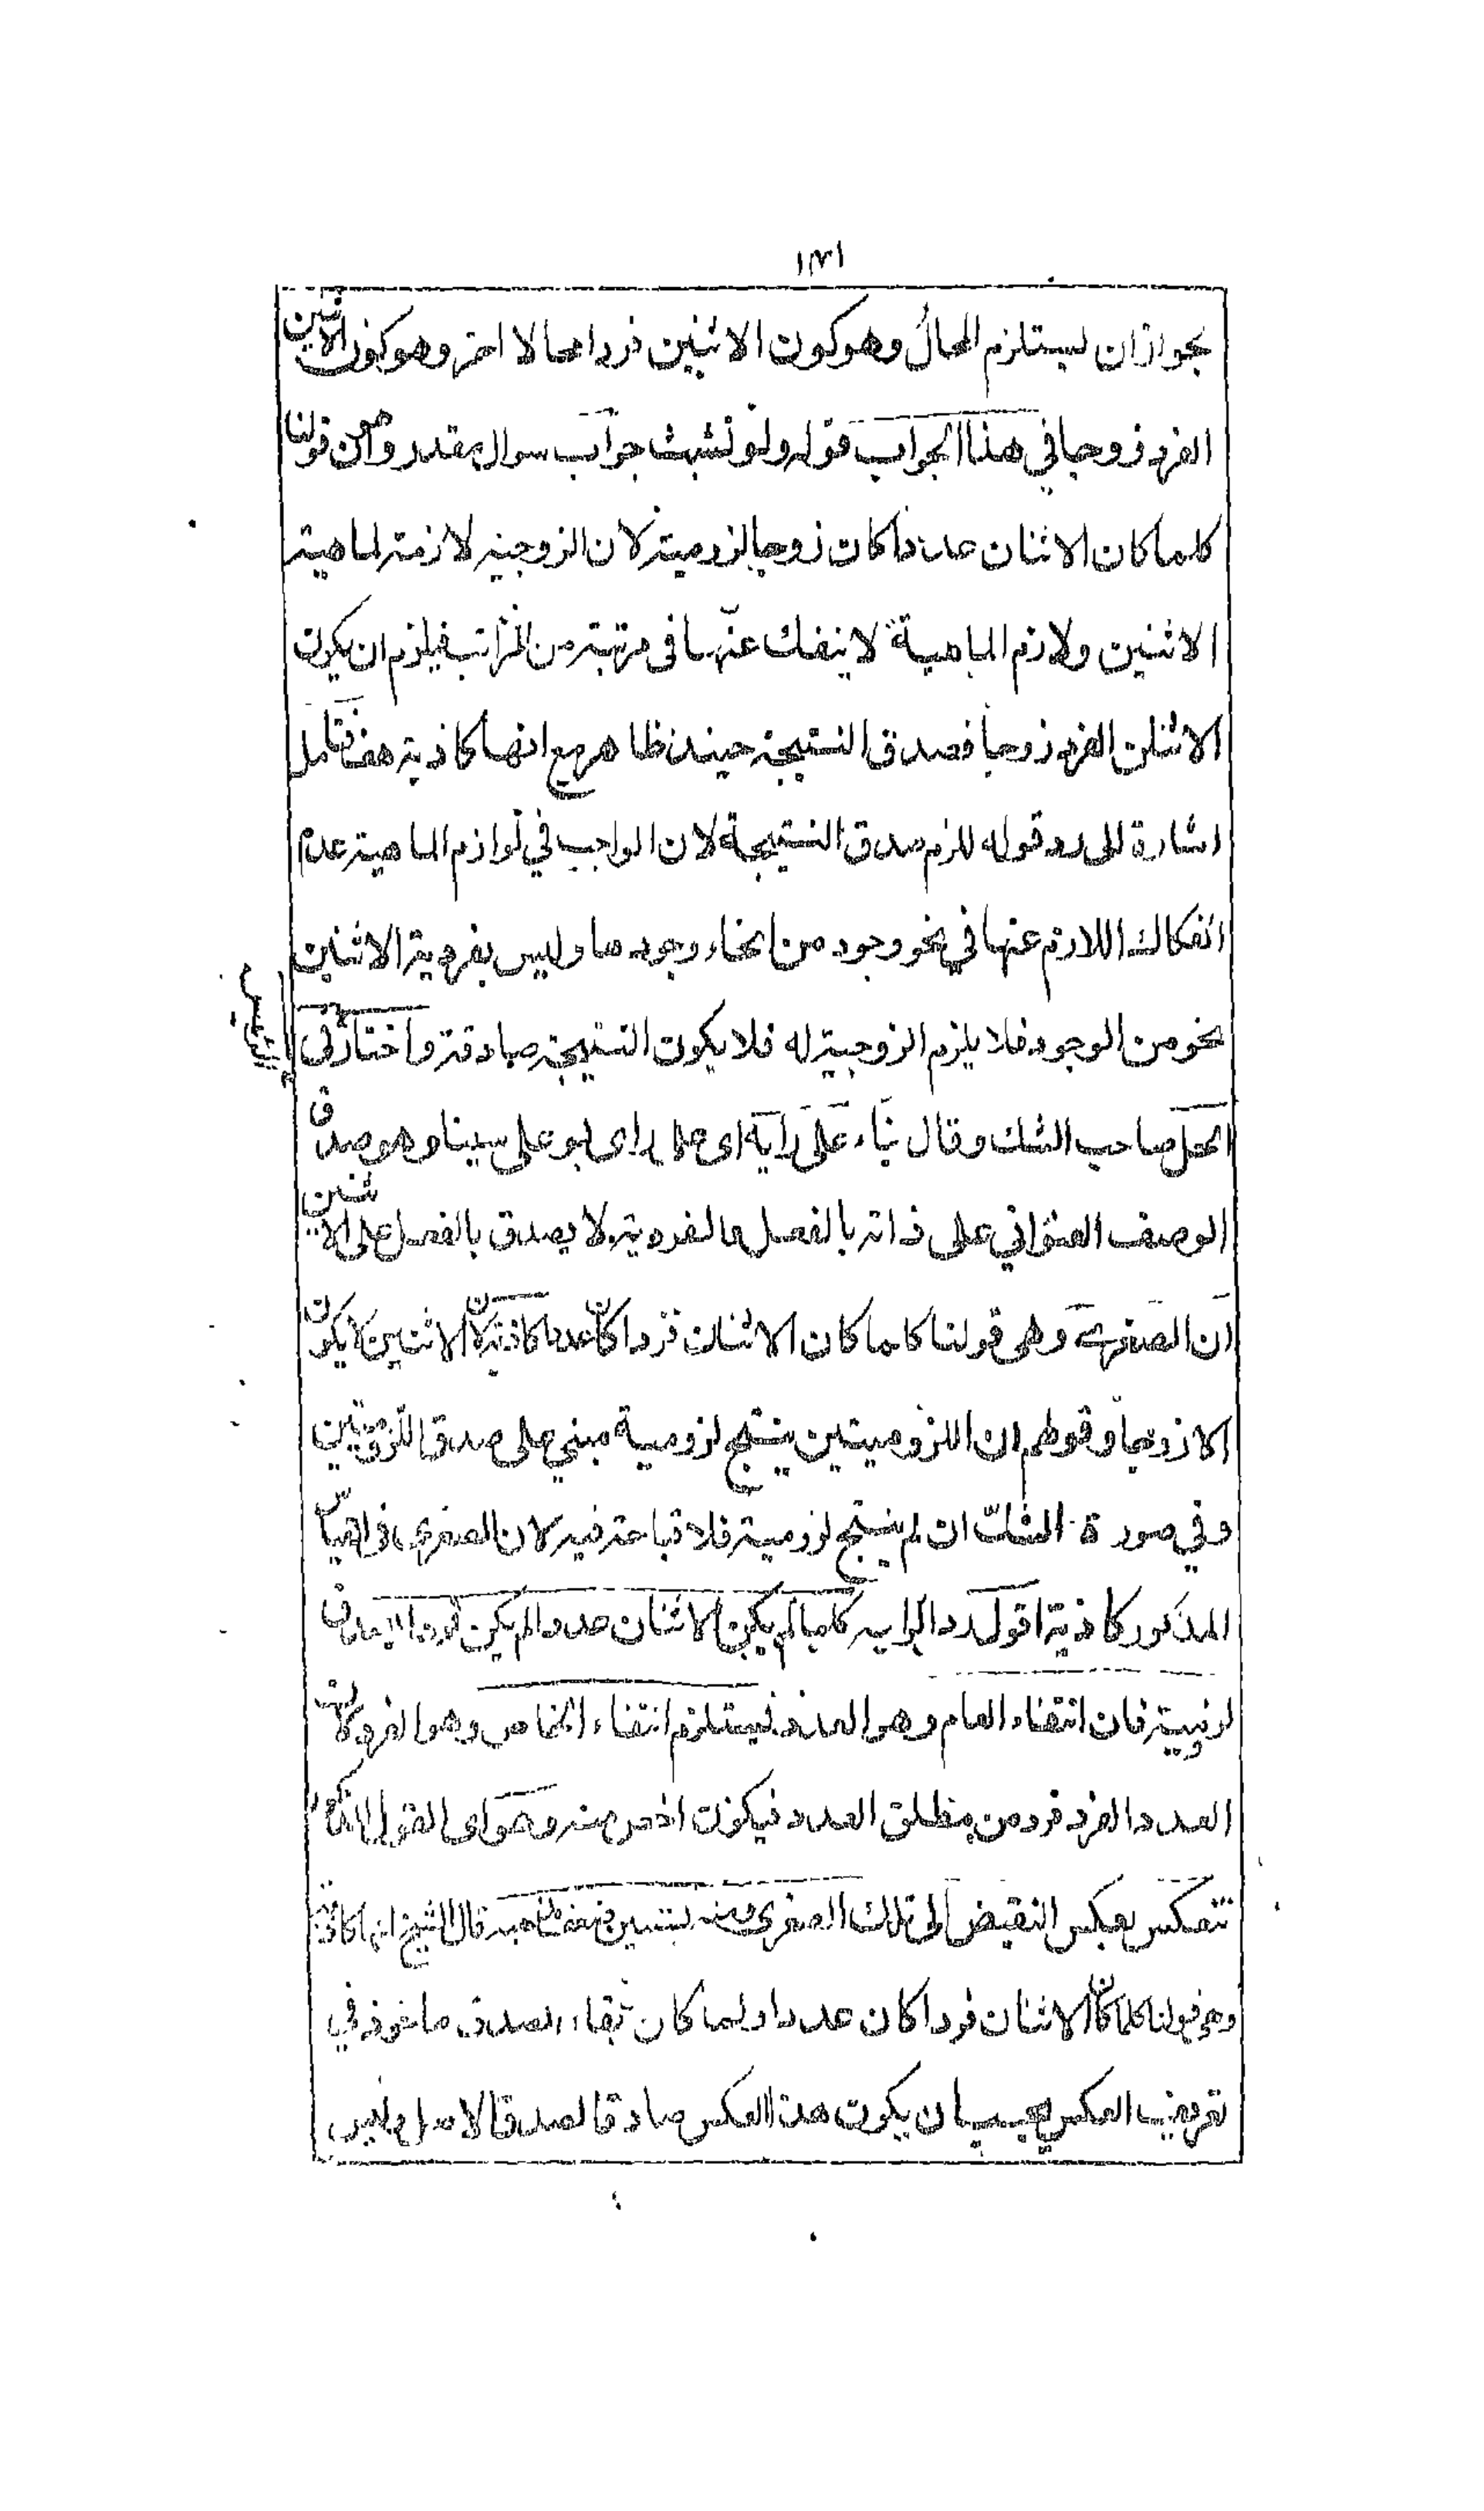 بجواز ان يستلزم المحال وهو كون الاثنين فردا محالا اخر وهو كون الاثنين
الفرد زوجا في هذا الجواب قوله ولو تشبث جواب سوال مقدر وهو ان قولنا
كلما كان الاثنان عددا كان زوجا لزومية لان الزوجية لازمة لماهية
الاثنين ولازم الماهية لا ينفك عنها في مرتبة من المراتب فيلزم ان يكون
الاثنان الفرد زوجا فصدق النتيجة حينئذ ظاهر مع انها كاذبة هف فتامل
اشارة الى رد قوله للزم صدق النتيجة لان الواجب في لوازم الماهية عدم
انفكاك اللازم عنها في نحو وجود من انحاء وجودها وليس بفردية الاثنين
نحو من الوجود فلا يلزم الزوجية له فلا يكون النتيجة صادقة واختار في
الحل صاحب الشك وقال بناء على رايه اى على راى ابو على سينا وهو صدق
الوصف العنواني على ذاته بالفعل فالفردية لا يصدق بالفعل على الاثنين
ان الصغرى وهى قولنا كلما كان الاثنان فردا كان عددا كاذبة لان الاثنين لا يكون
الا زوجا وقولهم ان اللزوميتين ينتج لزومية مبني على صدق اللزوميتين
وفي صورة الشك ان لم ينتج لزومية فلا قباحة فيه لان الصغرى
المذكور كاذبة اقول ردا لرايه كلما لم يكن الاثنان عددا لم يكن فردا يصدق
لزومية فان انتفاء العام وهو العدد يستلزم انتفاء الخاص وهو الفرد لان
العدد الفرد فرد من مطلق العدد فيكون اخص منه وهو اى القول
تنعكس بعكس النقيض الى تلك الصغرى ومنه يتبين ضعف مذهبه قال الشيخ انها كاذبة
وهو قولنا كلما كان الاثنان فردا كان عددا ولما كان بقاء الصدق ماخوذ في
تعريف العكس يجب ان يكون هذا العكس صادقا لصدق الاصل وليس